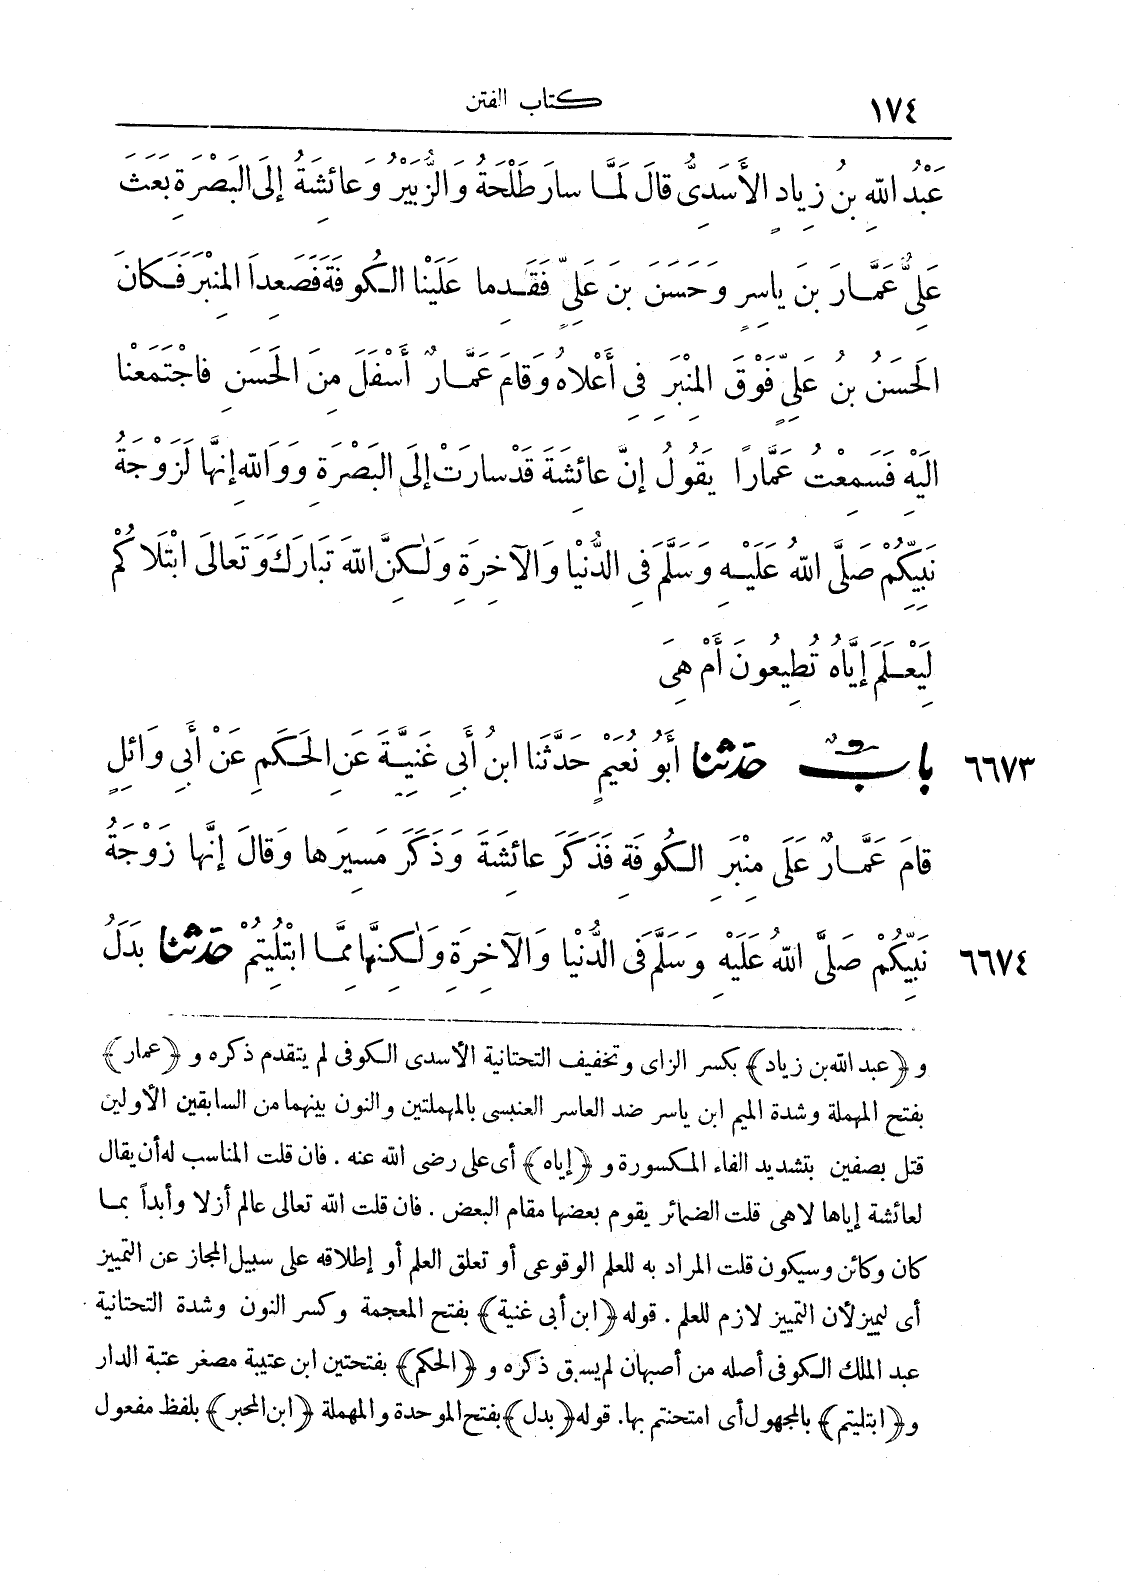 ١٧٤ كتاب الفتن
عَبْدُ اللهِ بنُ زِيادٍ الأَسَدِىُّ قالَ لَمَّا سارَ طَلْحَةُ وَالزُّبَيْرُ وَعائِشَةُ إلَى البَصْرَةِ بَعَثَ
عَلِىٌّ عَمَّارَ بنَ ياسِرٍ وَحَسَنَ بنَ عَلِىٍّ فَقَدِما عَلَيْنا الكُوفَةَ فَصَعِدا المِنْبَرَ فَكانَ
الحَسَنُ بنُ عَلِىٍّ فَوْقَ المِنْبَرِ فِى أَعْلاهُ وَقامَ عَمَّارٌ أَسْفَلَ مِنَ الحَسَنِ فاجْتَمَعْنا
الَيْهِ فَسَمِعْتُ عَمَّارًا يَقُولُ إنَّ عائِشَةَ قَدْ سارَتْ إلَى البَصْرَةِ وَوَاللهِ إنَّها لَزَوْجَةُ
نَبِيِّكُمْ صَلَّى اللهُ عَلَيْهِ وَسَلَّمَ فِى الدُّنْيا وَالآخِرَةِ وَلٰكِنَّ اللهَ تَبارَكَ وَتَعالَى ابْتَلاكُمْ
لِيَعْلَمَ إيَّاهُ تُطِيعُونَ أَمْ هِىَ
٦٦٧٣ بابٌ حَدَّثَنا أَبُو نُعَيْمٍ حَدَّثَنا ابنُ أَبِى غَنِيَّةَ عَنِ الحَكَمِ عَنْ أَبِى وَائِلٍ
قامَ عَمَّارٌ عَلَى مِنْبَرِ الكُوفَةِ فَذَكَرَ عائِشَةَ وَذَكَرَ مَسِيرَها وَقالَ إنَّها زَوْجَةُ
٦٦٧٤ نَبِيِّكُمْ صَلَّى اللهُ عَلَيْهِ وَسَلَّمَ فِى الدُّنْيا وَالآخِرَةِ وَلٰكِنَّها مِمَّا ابْتُلِيتُمْ حَدَّثَنا بَدَلُ
و ﴿عبد الله بن زياد﴾ بكسر الزاى وتخفيف التحتانية الأسدى الكوفى لم يتقدم ذكره و ﴿عمار﴾
بفتح المهملة وشدة الميم ابن ياسر ضد العاسر العنبسى بالمهملتين والنون بينهما من السابقين الأولين
قتل بصفين بتشديد الفاء المكسورة و ﴿إياه﴾ أى على رضى الله عنه . فان قلت المناسب له أن يقال
لعائشة إياها لا هى قلت الضمائر يقوم بعضها مقام البعض . فان قلت الله تعالى عالم أزلا وأبداً بما
كان وكائن وسيكون قلت المراد به للعلم الوقوعى أو تعلق العلم أو إطلاقه على سبيل المجاز عن التمييز
أى ليميز لأن التمييز لازم للعلم . قوله ﴿ابن أبى غنية﴾ بفتح المعجمة وكسر النون وشدة التحتانية
عبد الملك الكوفى أصله من أصبهان لم يسبق ذكره و ﴿الحكم﴾ بفتحتين ابن عتيبة مصغر عتبة الدار
و ﴿ابتليتم﴾ بالمجهول أى امتحنتم بها. قوله ﴿بدل﴾ بفتح الموحدة والمهملة ﴿ابن المحبر﴾ بلفظ مفعول